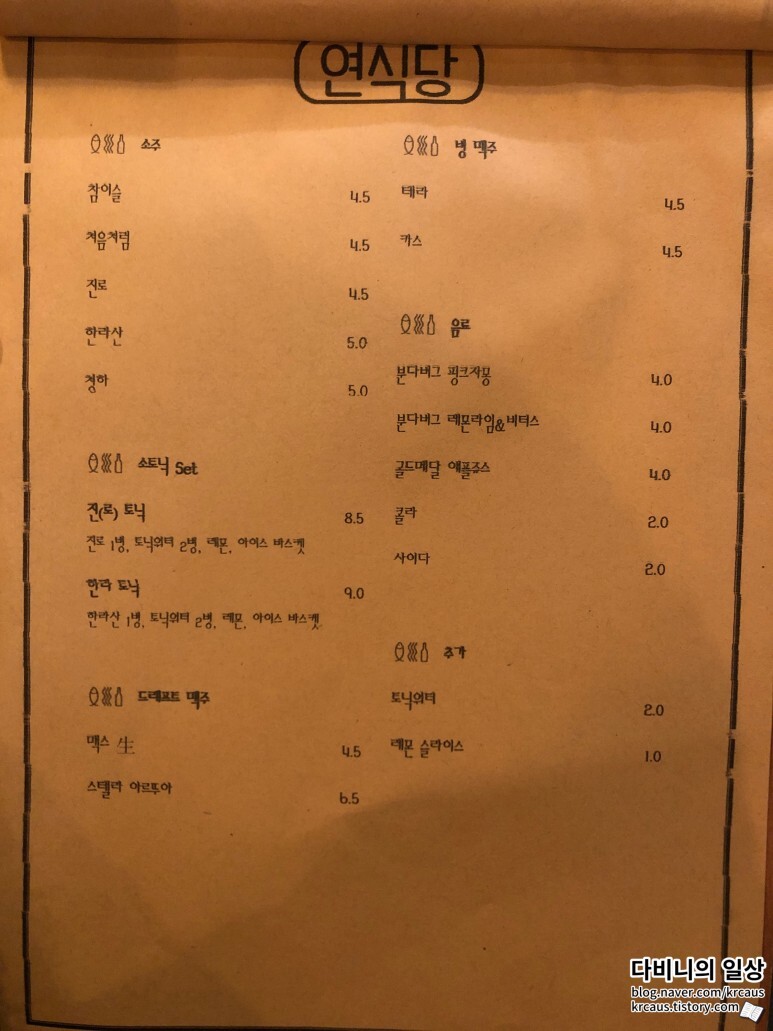 연식당
소주
참이슬 4.5
처음처럼 4.5
진로 4.5
한라산 5.0
청하 5.0
소토닉 Set
진(로) 토닉 8.5
진로 1병, 토닉워터 2병, 레몬, 아이스 바스켓
한라 토닉 9.0
한라산 1병, 토닉워터 2병, 레몬, 아이스 바스켓
드래프트 맥주
맥스 生 4.5
스텔라 아르투아 6.5
병 맥주
테라 4.5
카스 4.5
음료
분다버그 핑크자몽 4.0
분다버그 레몬라임&비터스 4.0
골드메달 애플쥬스 4.0
콜라 2.0
사이다 2.0
추가
토닉워터 2.0
레몬 슬라이스 1.0
다비니의 일상
blog.naver.com/krcaus
krcaus.tistory.com